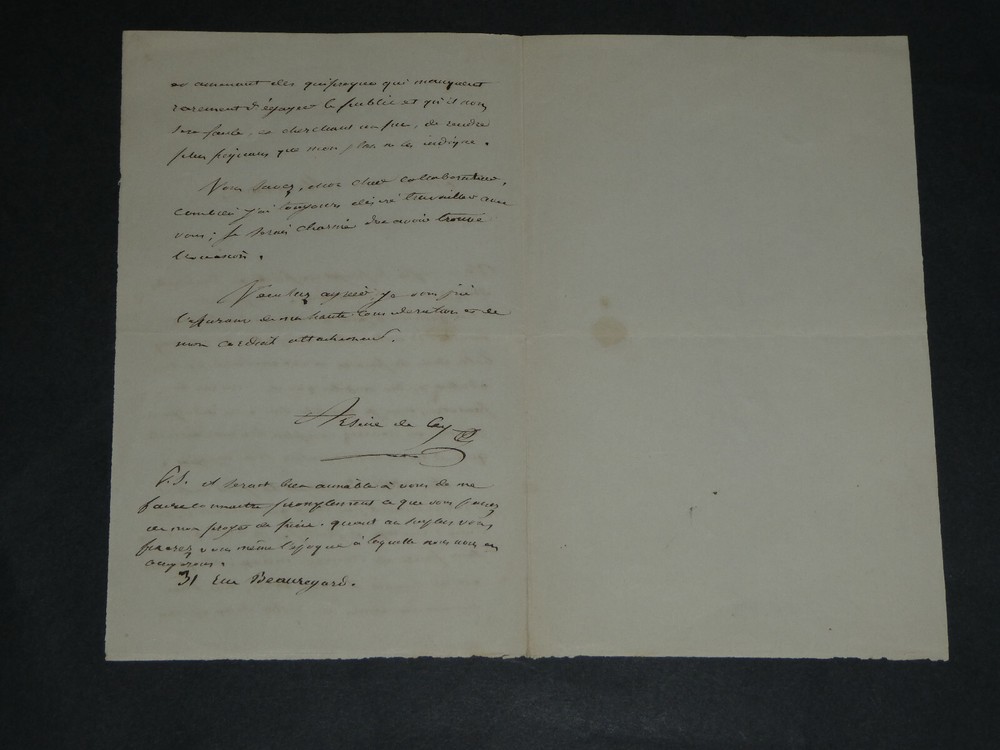 en amenant des quiproquos qui manquent
rarement d'égayer le public et qu'il nous
sera facile, en cherchant un peu, de rendre
plus que mon plan ne les indique.
Vous savez, mon cher collaborateur,
combien j'ai toujours désiré travailler avec
vous; je serais charmé d'en avoir trouvé
l'occasion.
Veuillez agréer, je vous prie
l'assurance de ma haute considération et de
mon cordial attachement.
Arsène de Cey
P.S. il serait bien aimable à vous de me
faire connaître promptement ce que vous pensez
de mon projet de pièce. quant au vous
fixerez vous même l'époque à laquelle nous nous en
occuperons.
31 rue Beauregard.